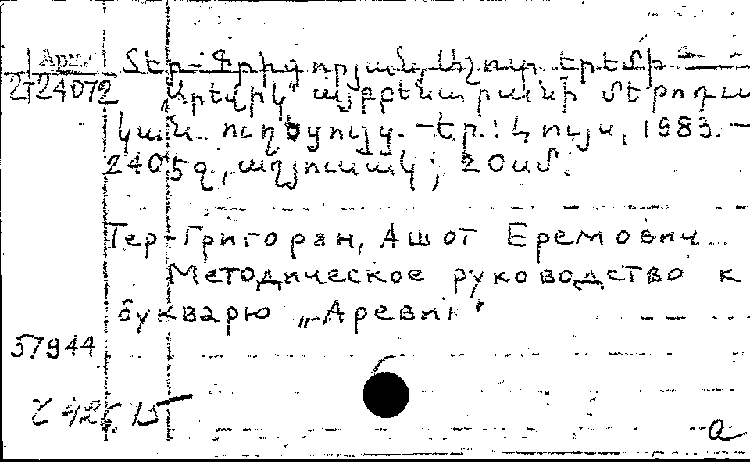 Арм.
Տեր-Գրիգորյան, Աշոտ Երեմի
2-24072 Արևիկ այբբենարանի մեթոդա
կան ուղեցույց. -Եր.: Լույս, 1983. -
240 էջ, աղյուսակ; 20սմ.
Тер-Григорян, Ашот Еремович
Методическое руководство к
букварю „Аревик"
57944
a